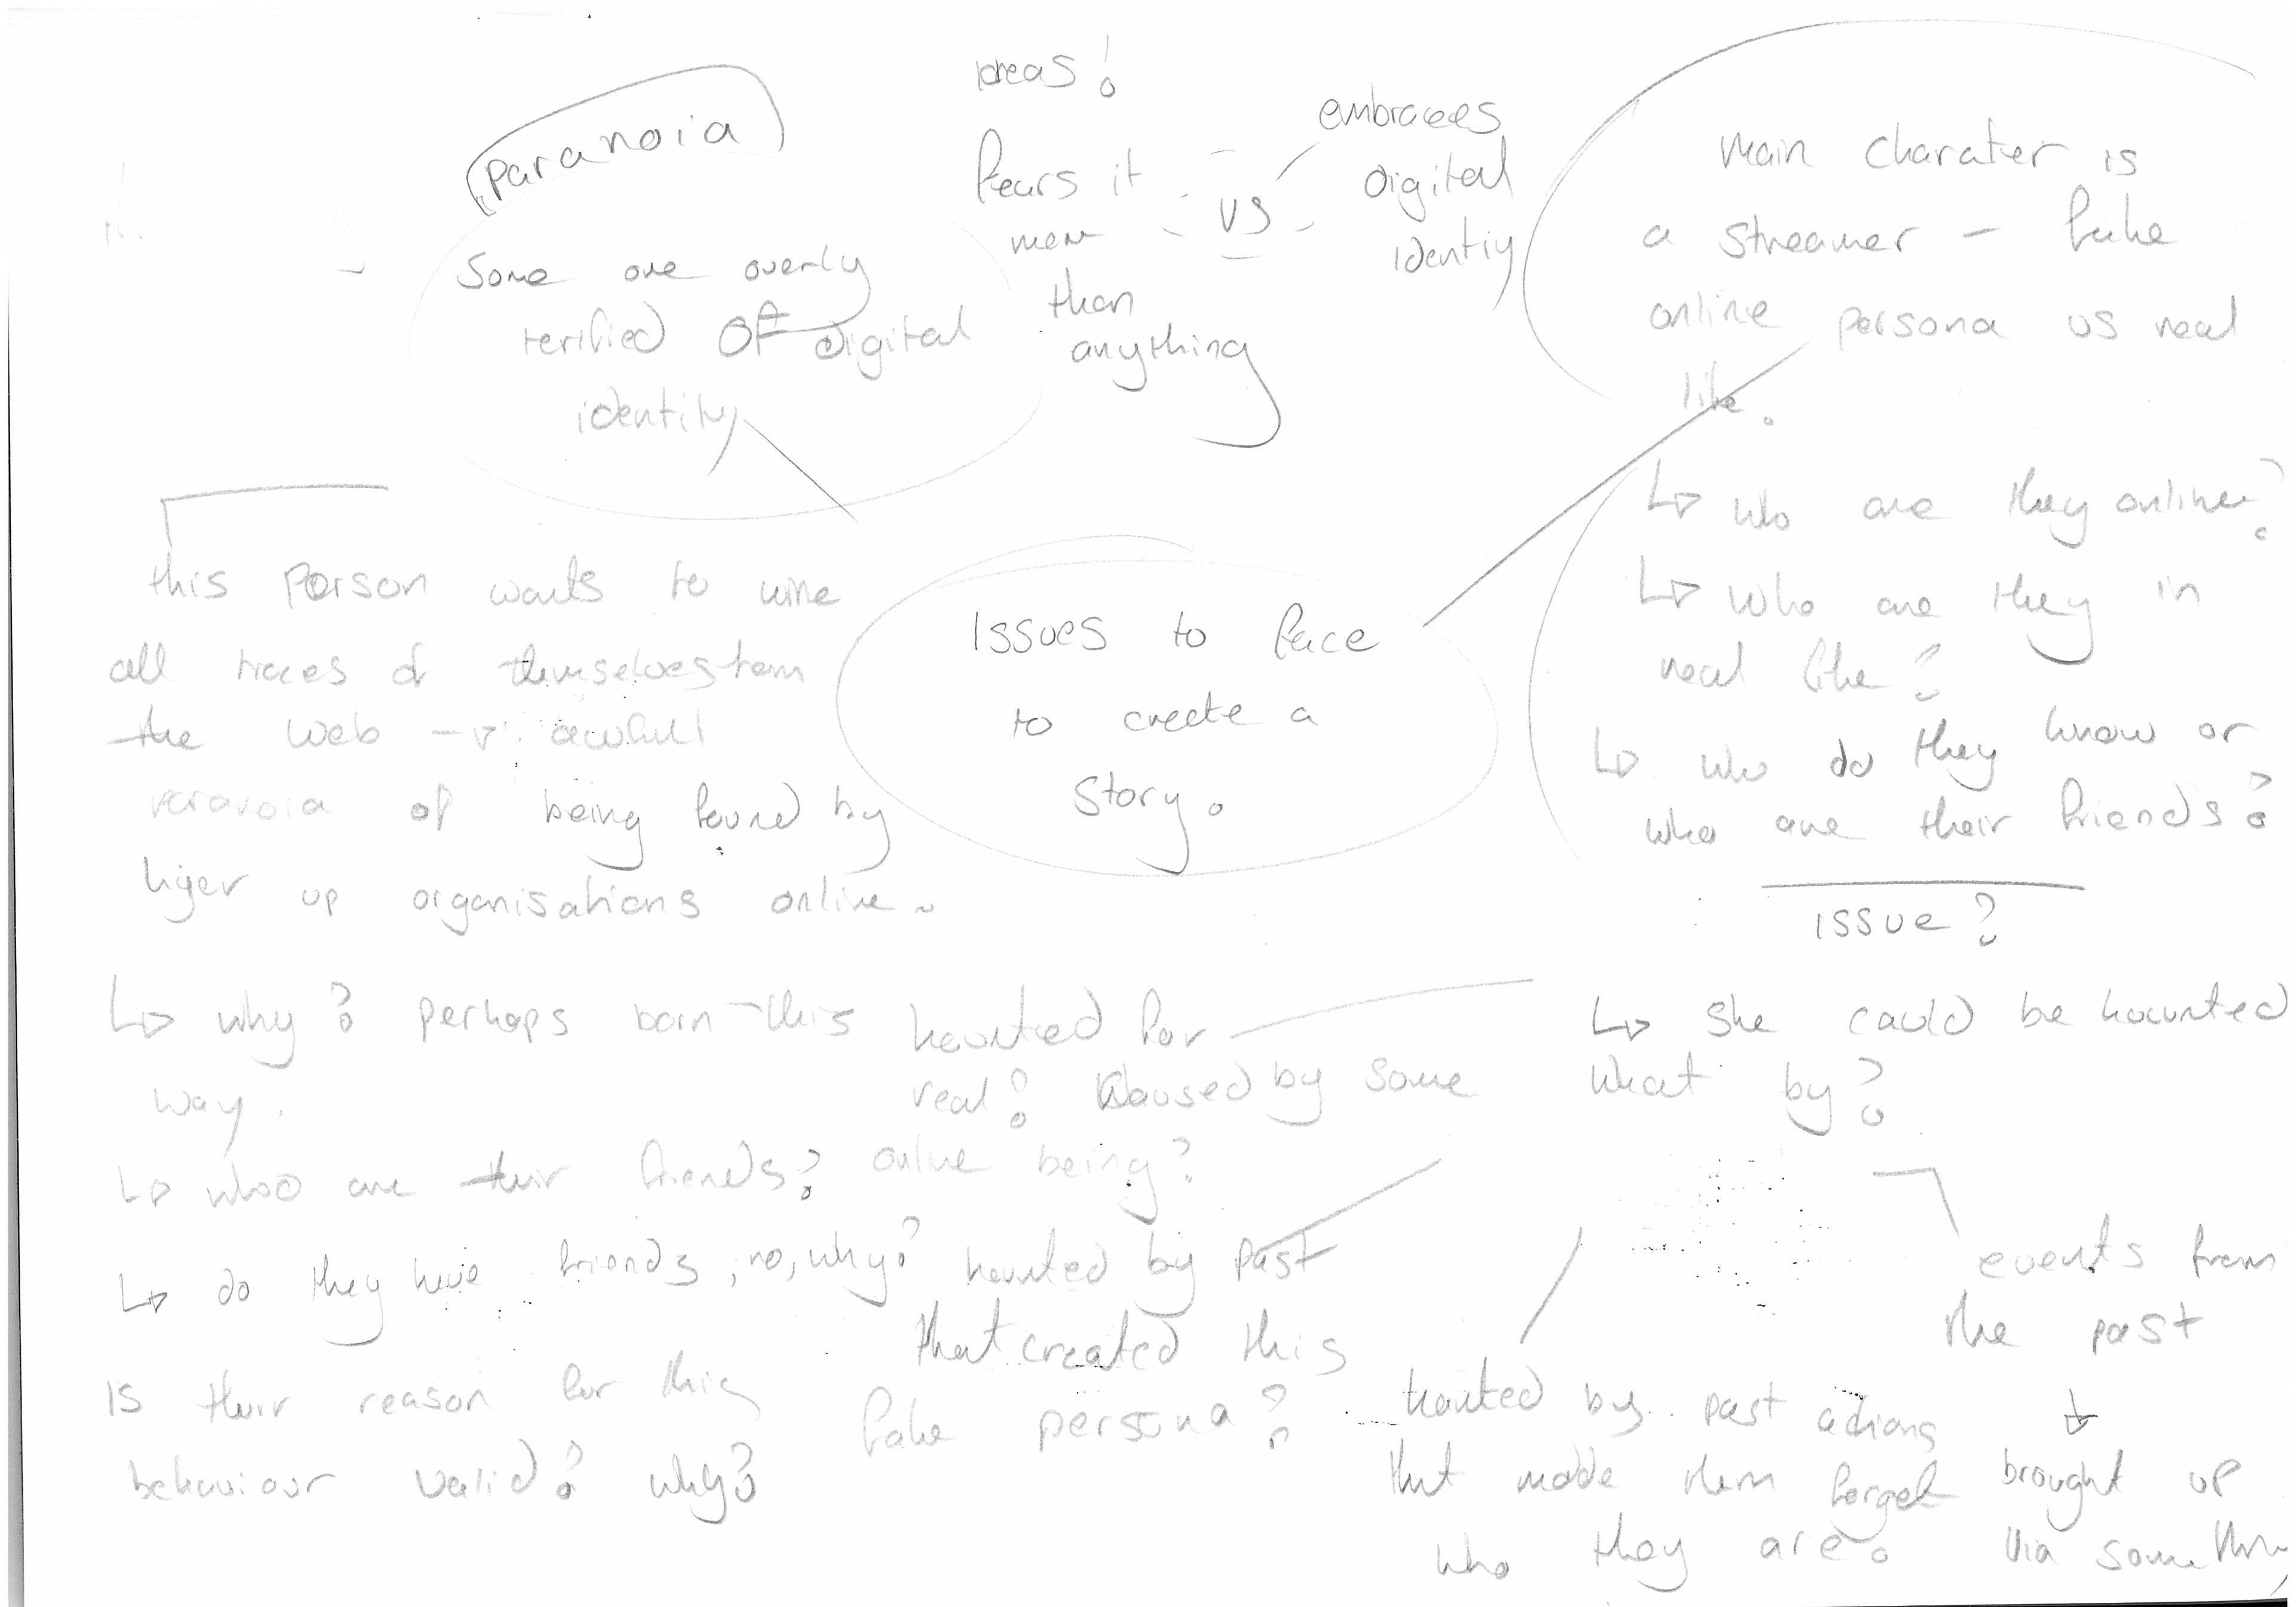 ideas!
paranoia
Some one overly
terified OF digital
identity
fears it
more
than
anything
VS
embracees
Digital
identiy
Main charater is
a streamer - fake
online persona vs real
life.
↳ who are they online?
↳ who are they in
real life?
↳ who do they know or
who are their friends?
issue?
↳ she could be haunted
what by?
events from
the past
↓
brought up
via some
Issues to face
to create a
story.
this person wants to
all traces of themselves from
the web → awfull
paranoia of being found by
higer up organisations online.
↳ why? perhaps born this
way.
↳ who are their friends?
↳ do they have friends, no, why?
is their reason for this
behaviour valid? why?
haunted for
real? Caused by some
online being?
haunted by past
that created this
fake persona?
haunted by past actions
that made them forget
who they are.